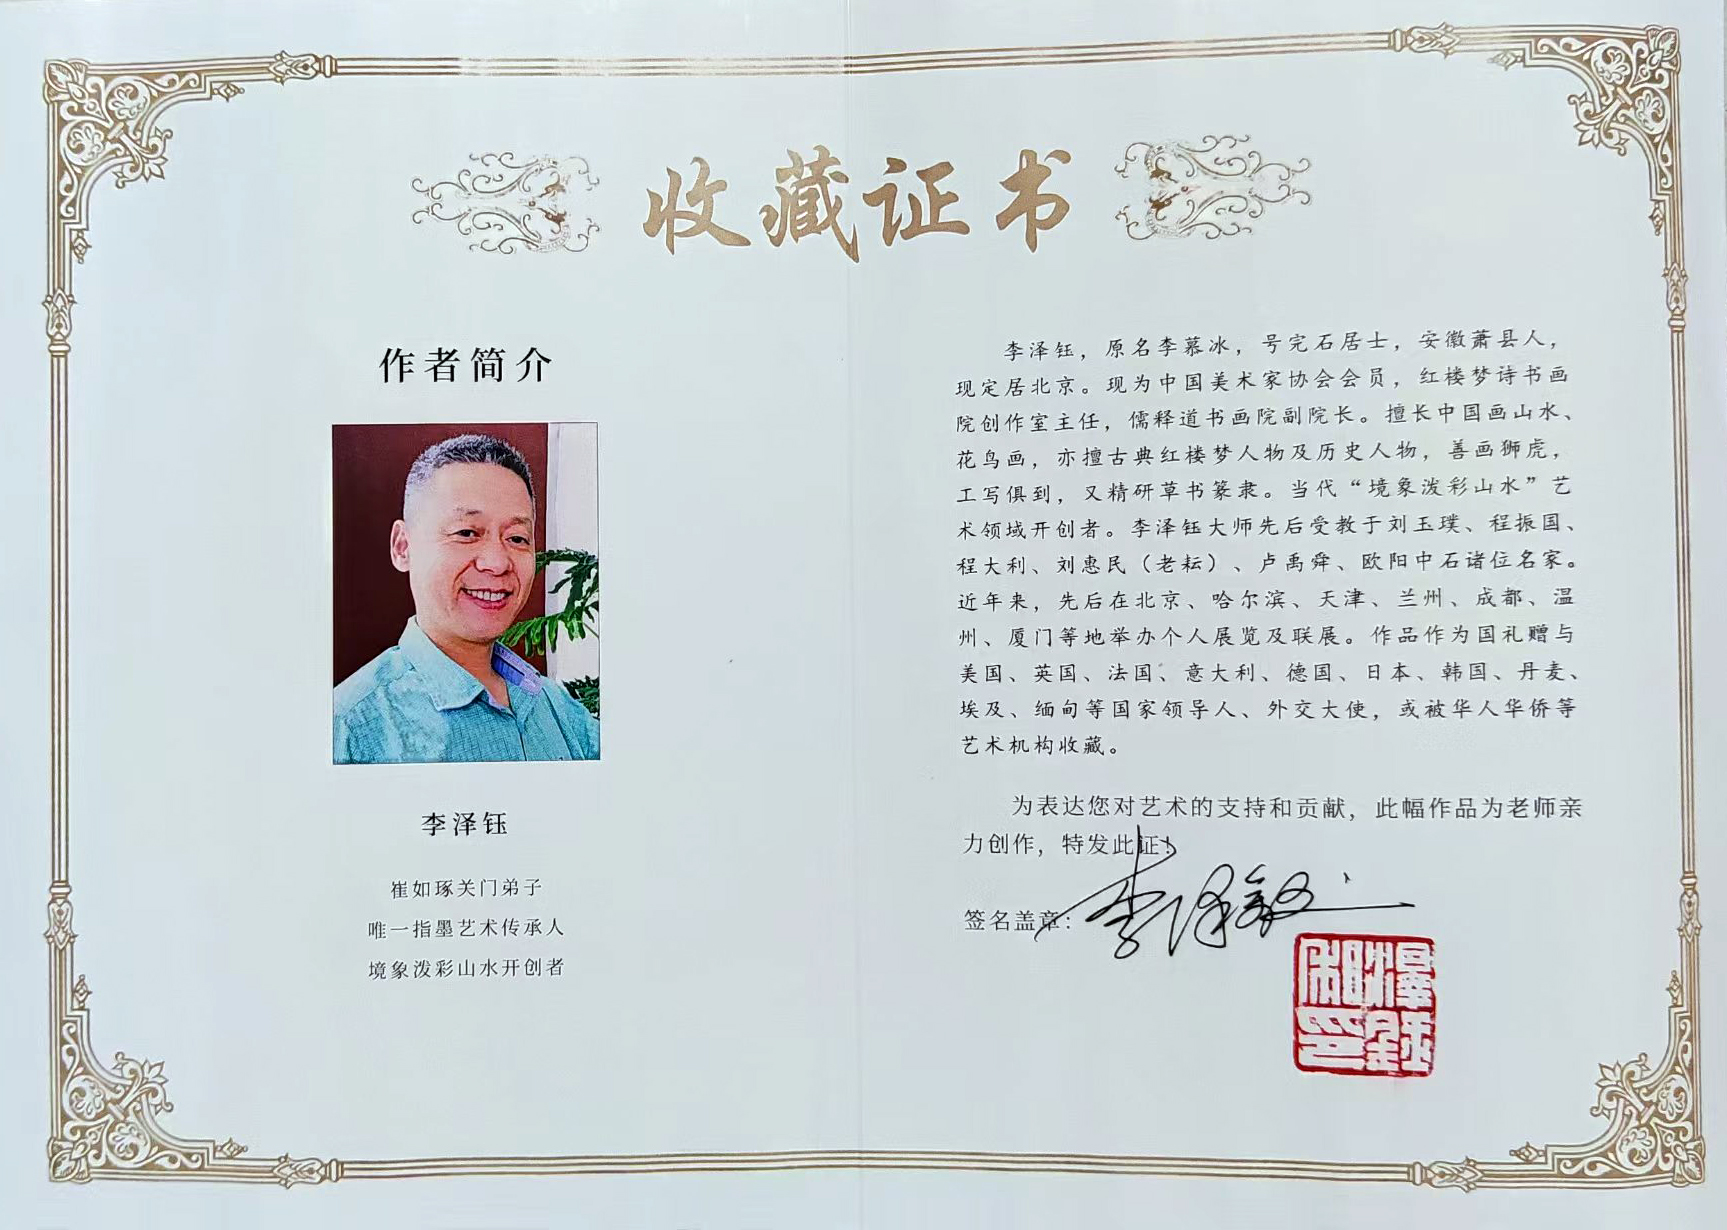 收藏证书
作者简介
李泽钰
崔如琢关门弟子
唯一指墨艺术传承人
境象泼彩山水开创者
李泽钰，原名李慕冰，号完石居士，安徽萧县人，
现定居北京。现为中国美术家协会会员，红楼梦诗书画
院创作室主任，儒释道书画院副院长。擅长中国画山水、
花鸟画，亦擅古典红楼梦人物及历史人物，善画狮虎，
工写俱到，又精研草书篆隶。当代“境象泼彩山水”艺
术领域开创者。李泽钰大师先后受教于刘玉璞、程振国、
程大利、刘惠民（老耘）、卢禹舜、欧阳中石诸位名家。
近年来，先后在北京、哈尔滨、天津、兰州、成都、温
州、厦门等地举办个人展览及联展。作品作为国礼赠与
美国、英国、法国、意大利、德国、日本、韩国、丹麦、
埃及、缅甸等国家领导人、外交大使，或被华人华侨等
艺术机构收藏。
为表达您对艺术的支持和贡献，此幅作品为老师亲
力创作，特发此证！
签名盖章：